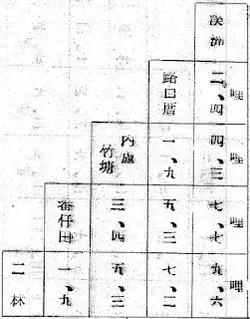 溪洲
路口厝 二、四哩
內
竹塘 一、九 四、三哩
番仔田 三、四 五、三 七、七哩
二林 一、九 五、三 七、二 九、六哩